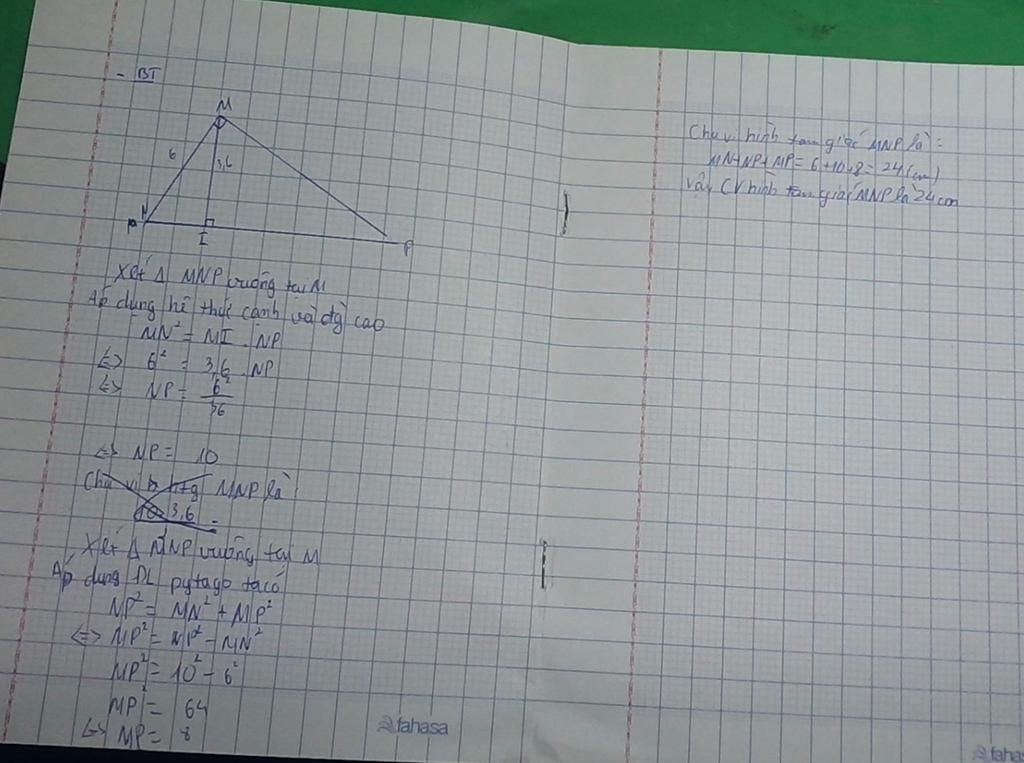 - BT
M
6
3,6
N
I
P
Xét Δ MNP vuông tại M
Áp dụng hệ thức cạnh và đg cao
MN² = MI . NP
<=> 6² = 3,6 . NP
<=> NP = 6²
36
<=> NP = 10
Chu vi h t.g MNP là:
10 3,6 =
Xét Δ MNP vuông tại M
Áp dụng ĐL pytago ta có
NP² = MN² + MP²
<=> MP² = NP² - MN²
MP² = 10² - 6²
MP² = 64
<=> MP = 8
fahasa
Chu vi hình tam giác MNP là:
MN+NP+MP = 6+10+8 = 24 (cm)
Vậy CV hình tam giác MNP là 24 cm
fahas